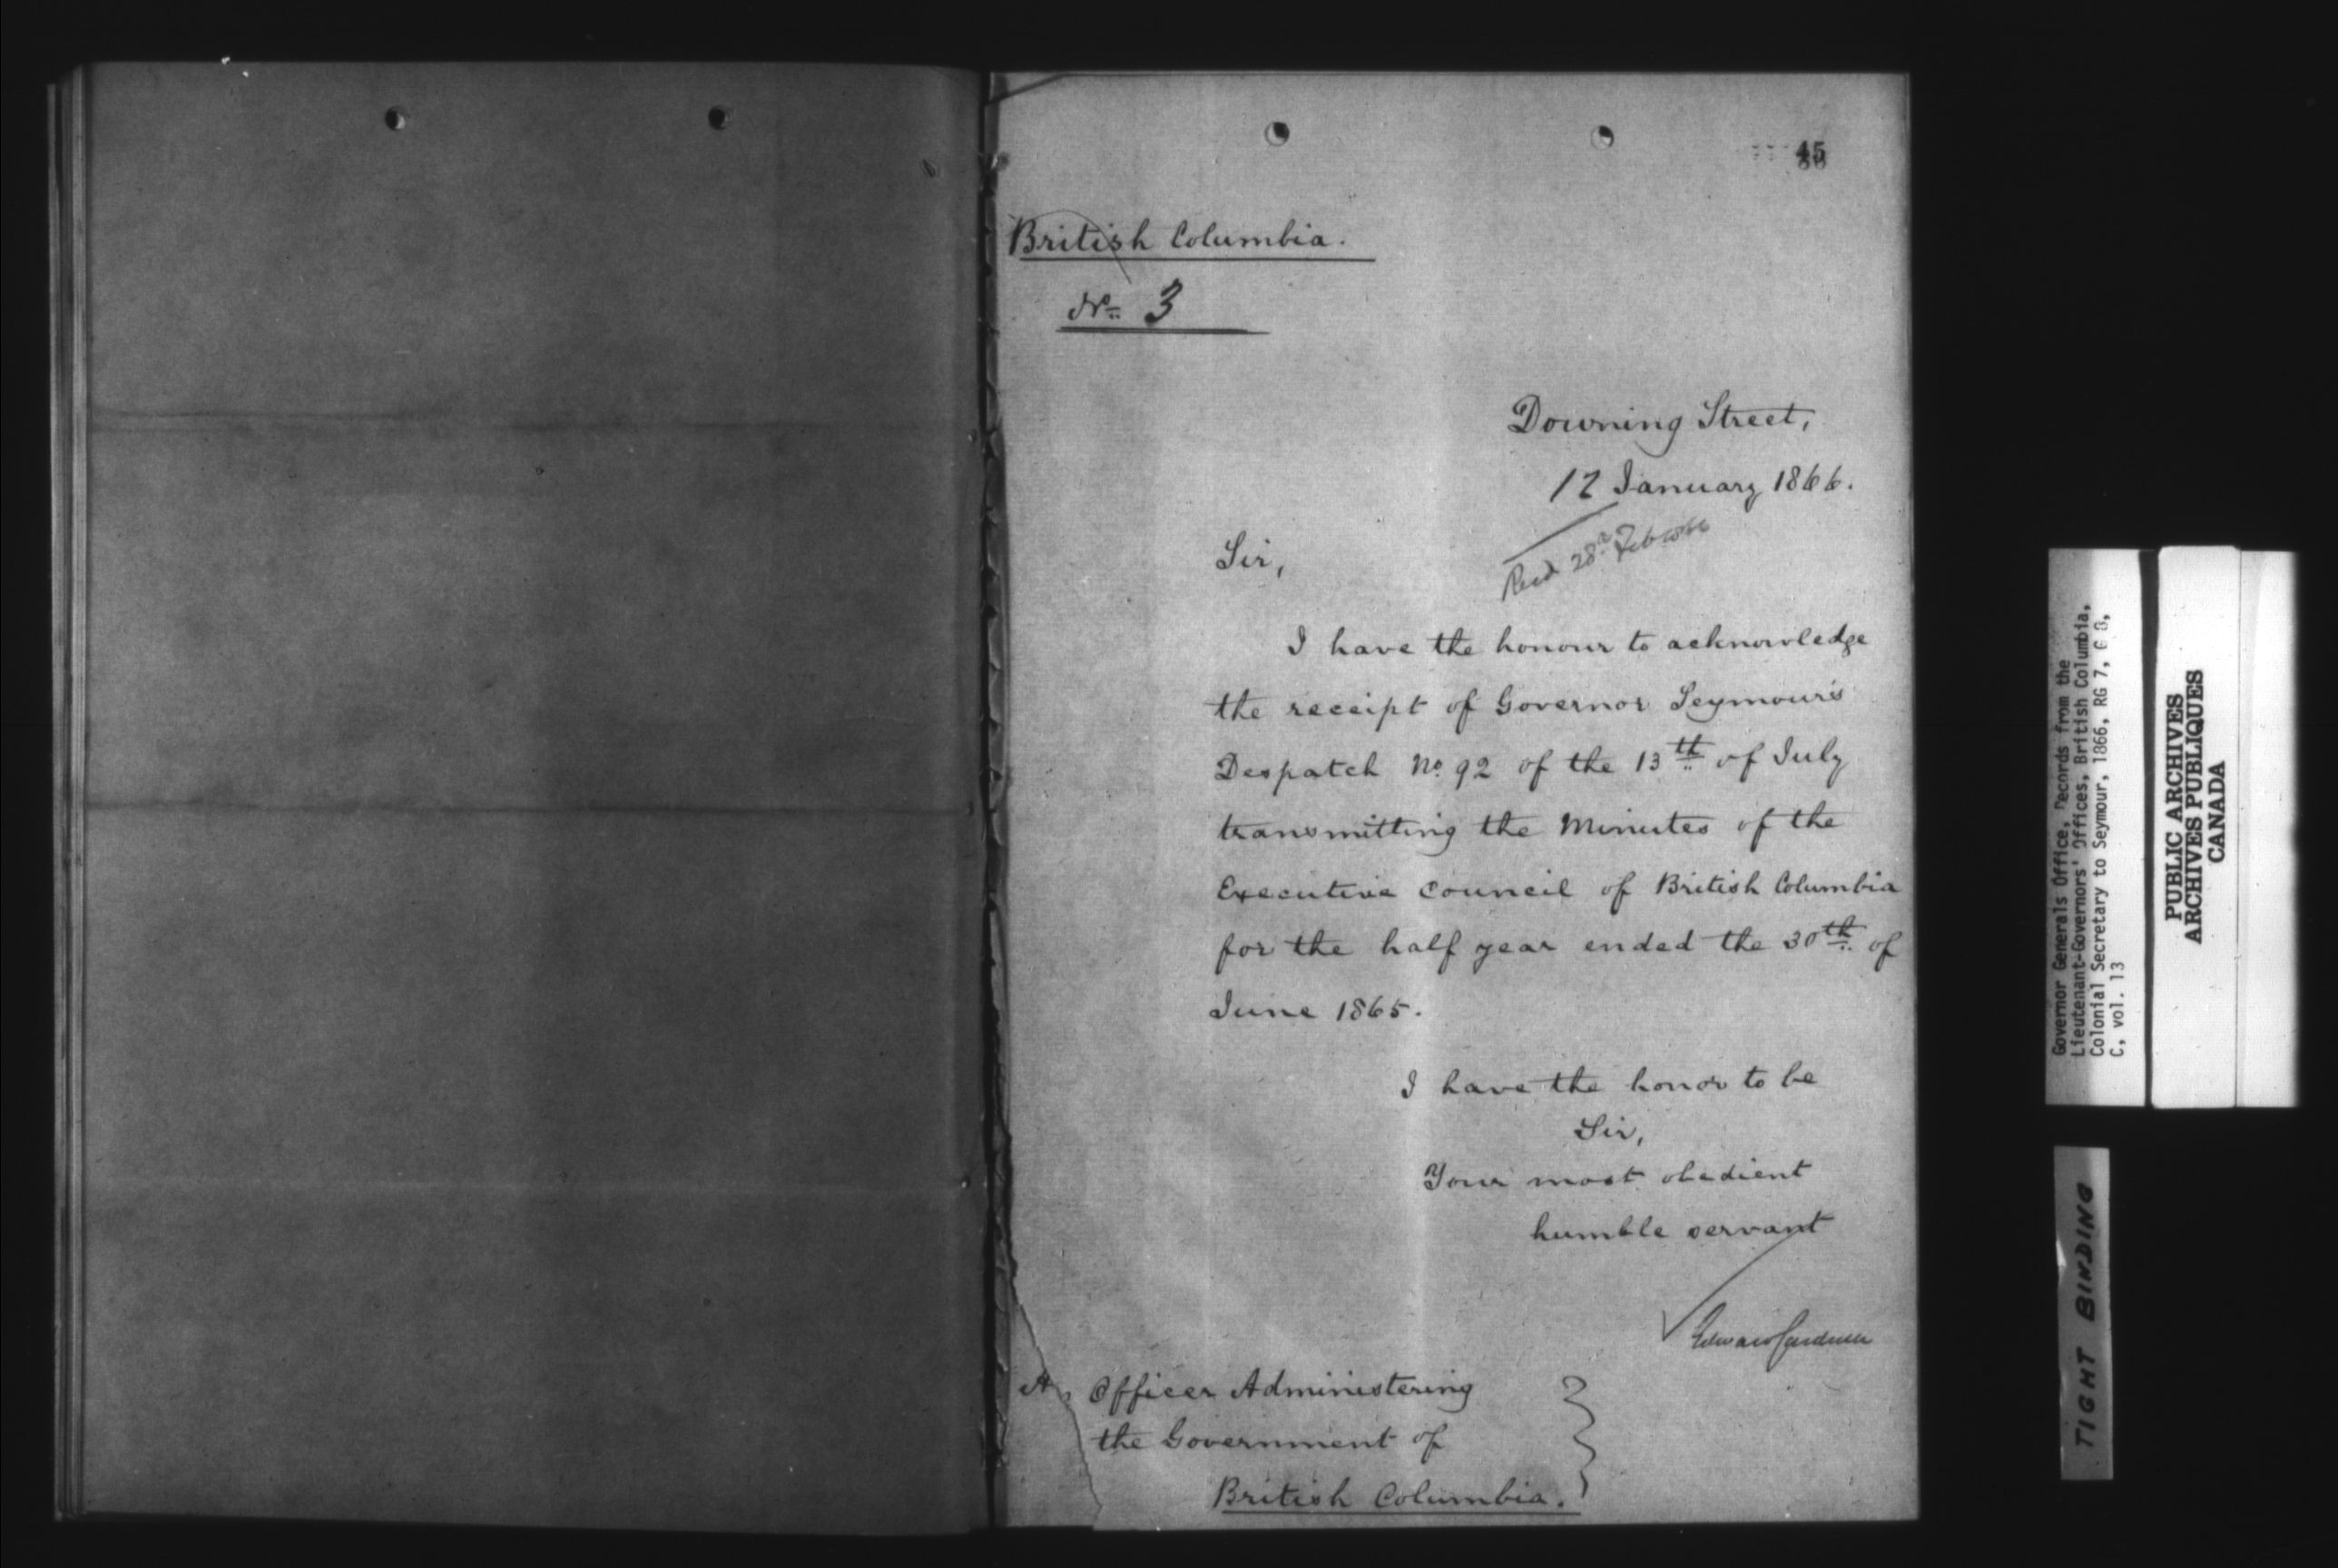 45
British Columbia.
No. 3
Downing Street,
12 January 1866.
Recd 28th Feb
Sir,
I have the honour to acknowledge
the receipt of Governor Seymour's
Despatch No. 92 of the 13th of July
transmitting the Minutes of the
Executive Council of British Columbia
for the half year ended the 30th of
June 1865.
I have the honor to be
Sir,
Your most obedient
humble servant
Edward Cardwell
Officer Administering
the Government of
British Columbia.
Governor Generals Office, Records from the
Lieutenant-Governors' Offices, British Columbia,
Colonial Secretary to Seymour, 1866, RG 7, G 8,
C, vol. 13
PUBLIC ARCHIVES
ARCHIVES PUBLIQUES
CANADA
TIGHT BINDING